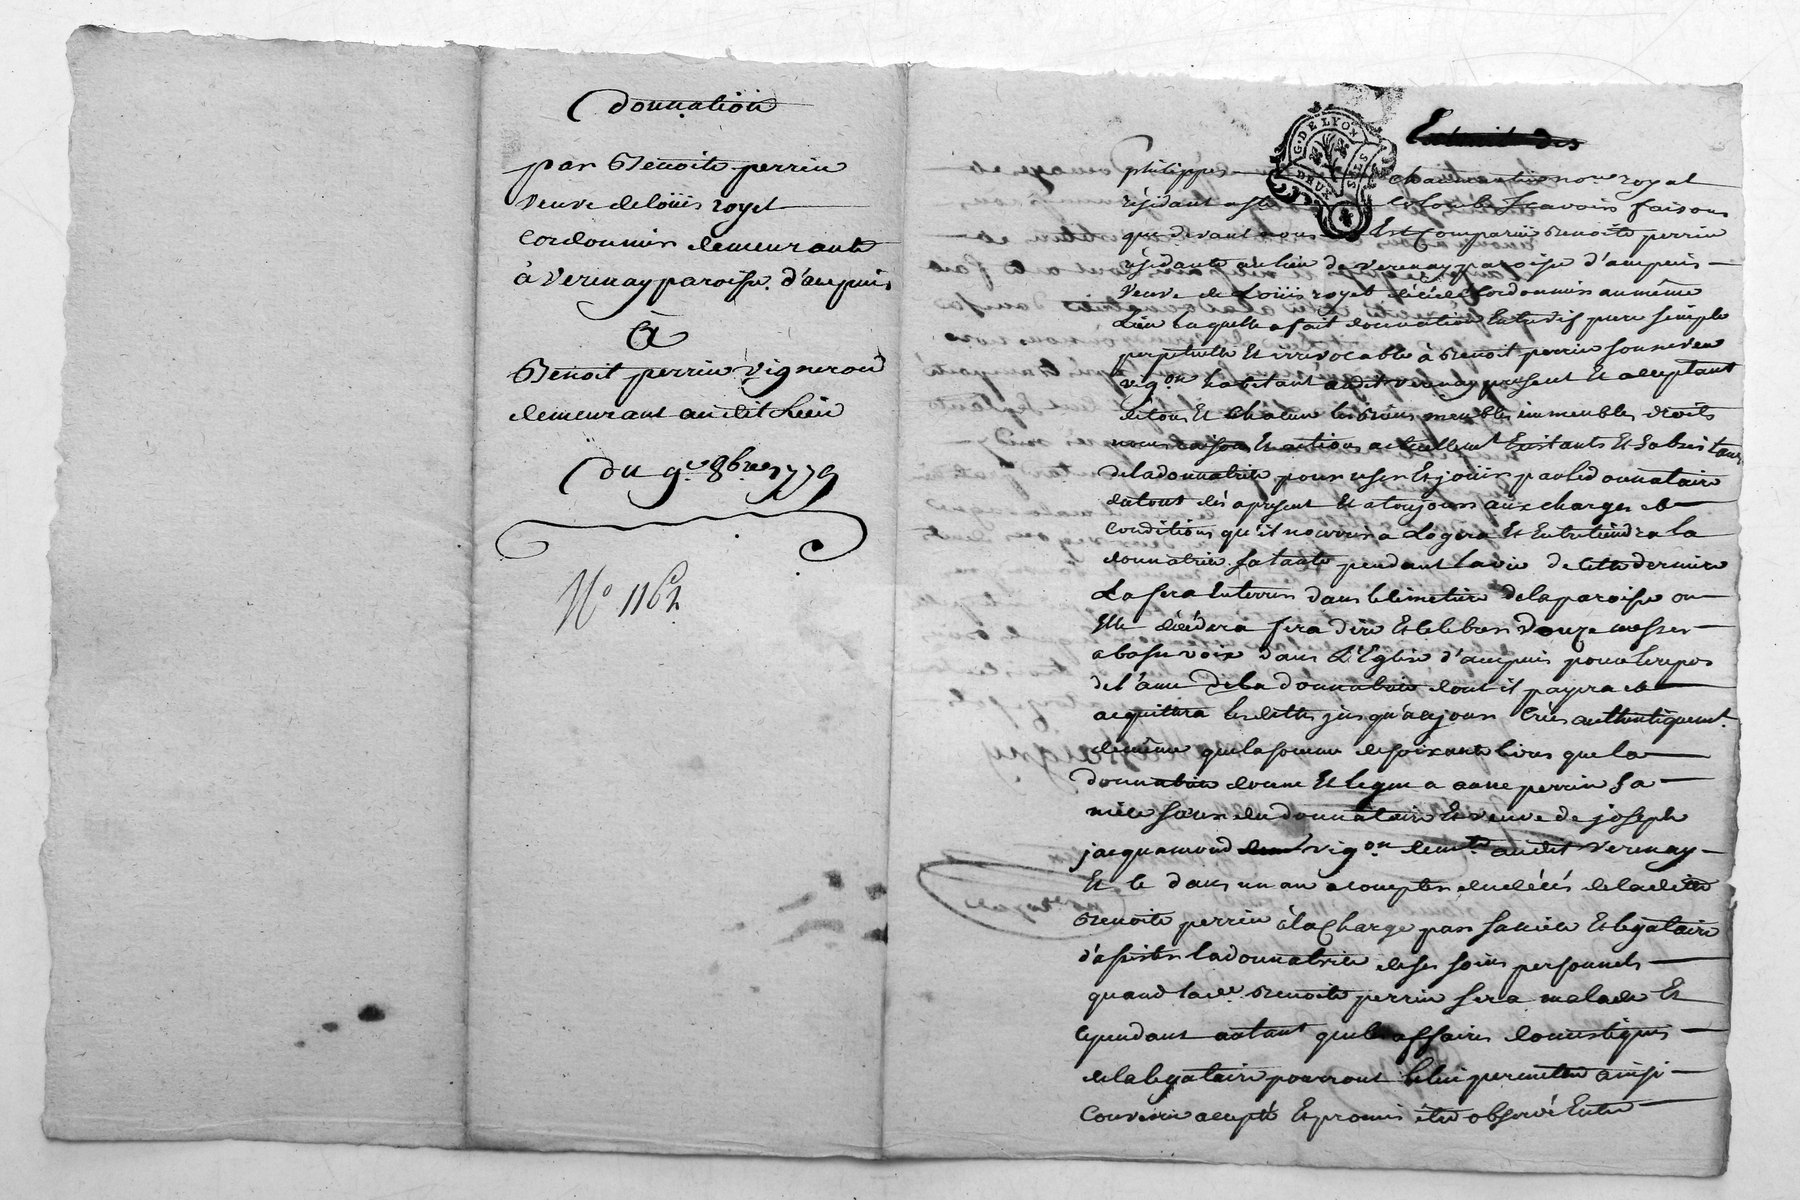 donnation
par Benoite perrin
veuve de loüis royet
Cordonnier demeurante
à Verenay paroisse d'ampuis
à
Benoit perrin vigneron
demeurant audit Lieu
Du 9.e 8bre 1779
N.o 1162
Extrait des
G. DE LYON
DEUX SLS
philippe chaumartin no.re royal
résidant a ste Colombe scavoir faisons
que devant nous Est Comparüe Benoite perrin
résidante au lieu de Verenay paroisse d'ampuis
veuve de Loüis royet décédé Cordonnier au même
Lieu laquelle a fait donnation Entrevifs pure simple
perpetuelle Et irrevocable à Benoit perrin son neveu
vig.on habitant audit verenay present Et acceptant
de tous Et chacun les Biens meubles immeubles droits
noms raisons Et actions actuellem.t Existants Et subsistans
de la donnatrice pour user Et joüir par le donnataire
du tout dès apresent Et a toujours aux charges et
conditions qu'il nourrira Logera Et Entretiendra la
donnatrice sa tante pendant la vie de cette derniere
La fera Enterrer dans le cimetiere de la paroisse ou
Elle décédera fera dire Et celebrer Douze messes
a basse voix dans L'Eglise d'ampuis pour le repos
de l'ame de la donnatrice dont il payera et
acquittera les dettes jusqu'a ce jour Crées authentiquem.t
de même que la somme de soixante livres que la
donnatrice donne Et legue a anne perrin sa
niéce sœur du donnataire Et veuve de joseph
jacquamond vig.on demt. audit Verenay
Et ce dans un an a compter du décés de la ditte
Benoite perrin à la Charge par sa niéce Et légataire
d'assister la donnatrice de ses soins personnels
quand lad.e Benoite perrin sera malade Et
cependant autant que les affaires domestiques
de la legataire pourront le lui permettre ainsi
Convenu accepté Et promis être observé Entre